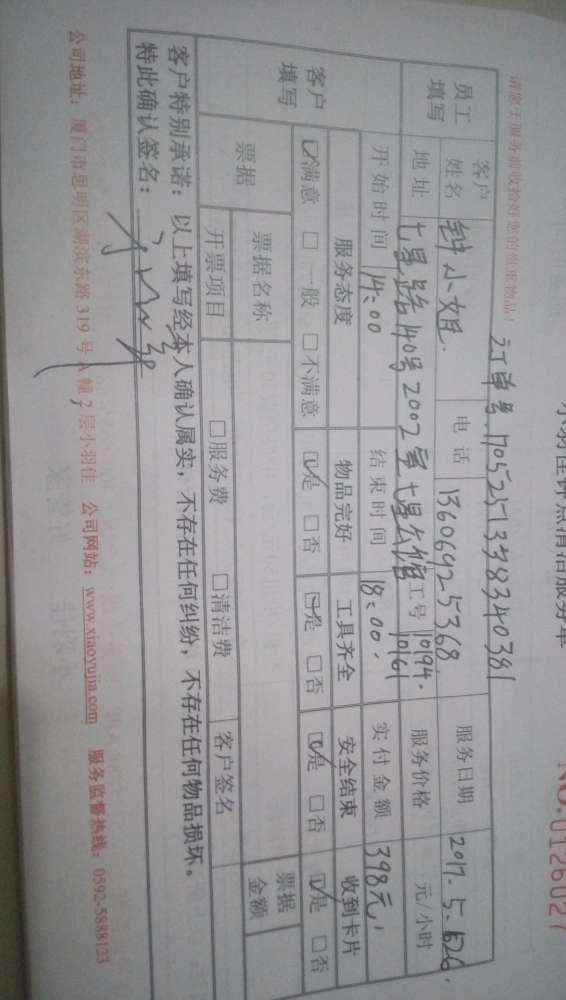 小羽佳钟点清洁服务单
NO.0126027
请您于服务前收拾好您的贵重物品!
订单号:17052513378340381
员工填写 客户姓名 钟小姐. 电话 13606925368 服务日期 2017.5.26.
地址 七星路40号2002室七星公馆 工号 10194. 10161 服务价格 元/小时
开始时间 14:00 结束时间 18:00. 实付金额 398元,
客户填写 服务态度 物品完好 工具齐全 安全结束 收到卡片
☑满意 □一般 □不满意 ☑是 □否 ☑是 □否 ☑是 □否 ☑是 □否
票据 票据名称 票据金额
开票项目 □服务费 □清洁费 客户签名
客户特别承诺:以上填写经本人确认属实,不存在任何纠纷,不存在任何物品损坏。
特此确认签名:
公司地址:厦门市思明区湖滨东路319号A幢2层小羽佳 公司网站:www.xiaoyujia.com 服务监督热线:0592-5888123